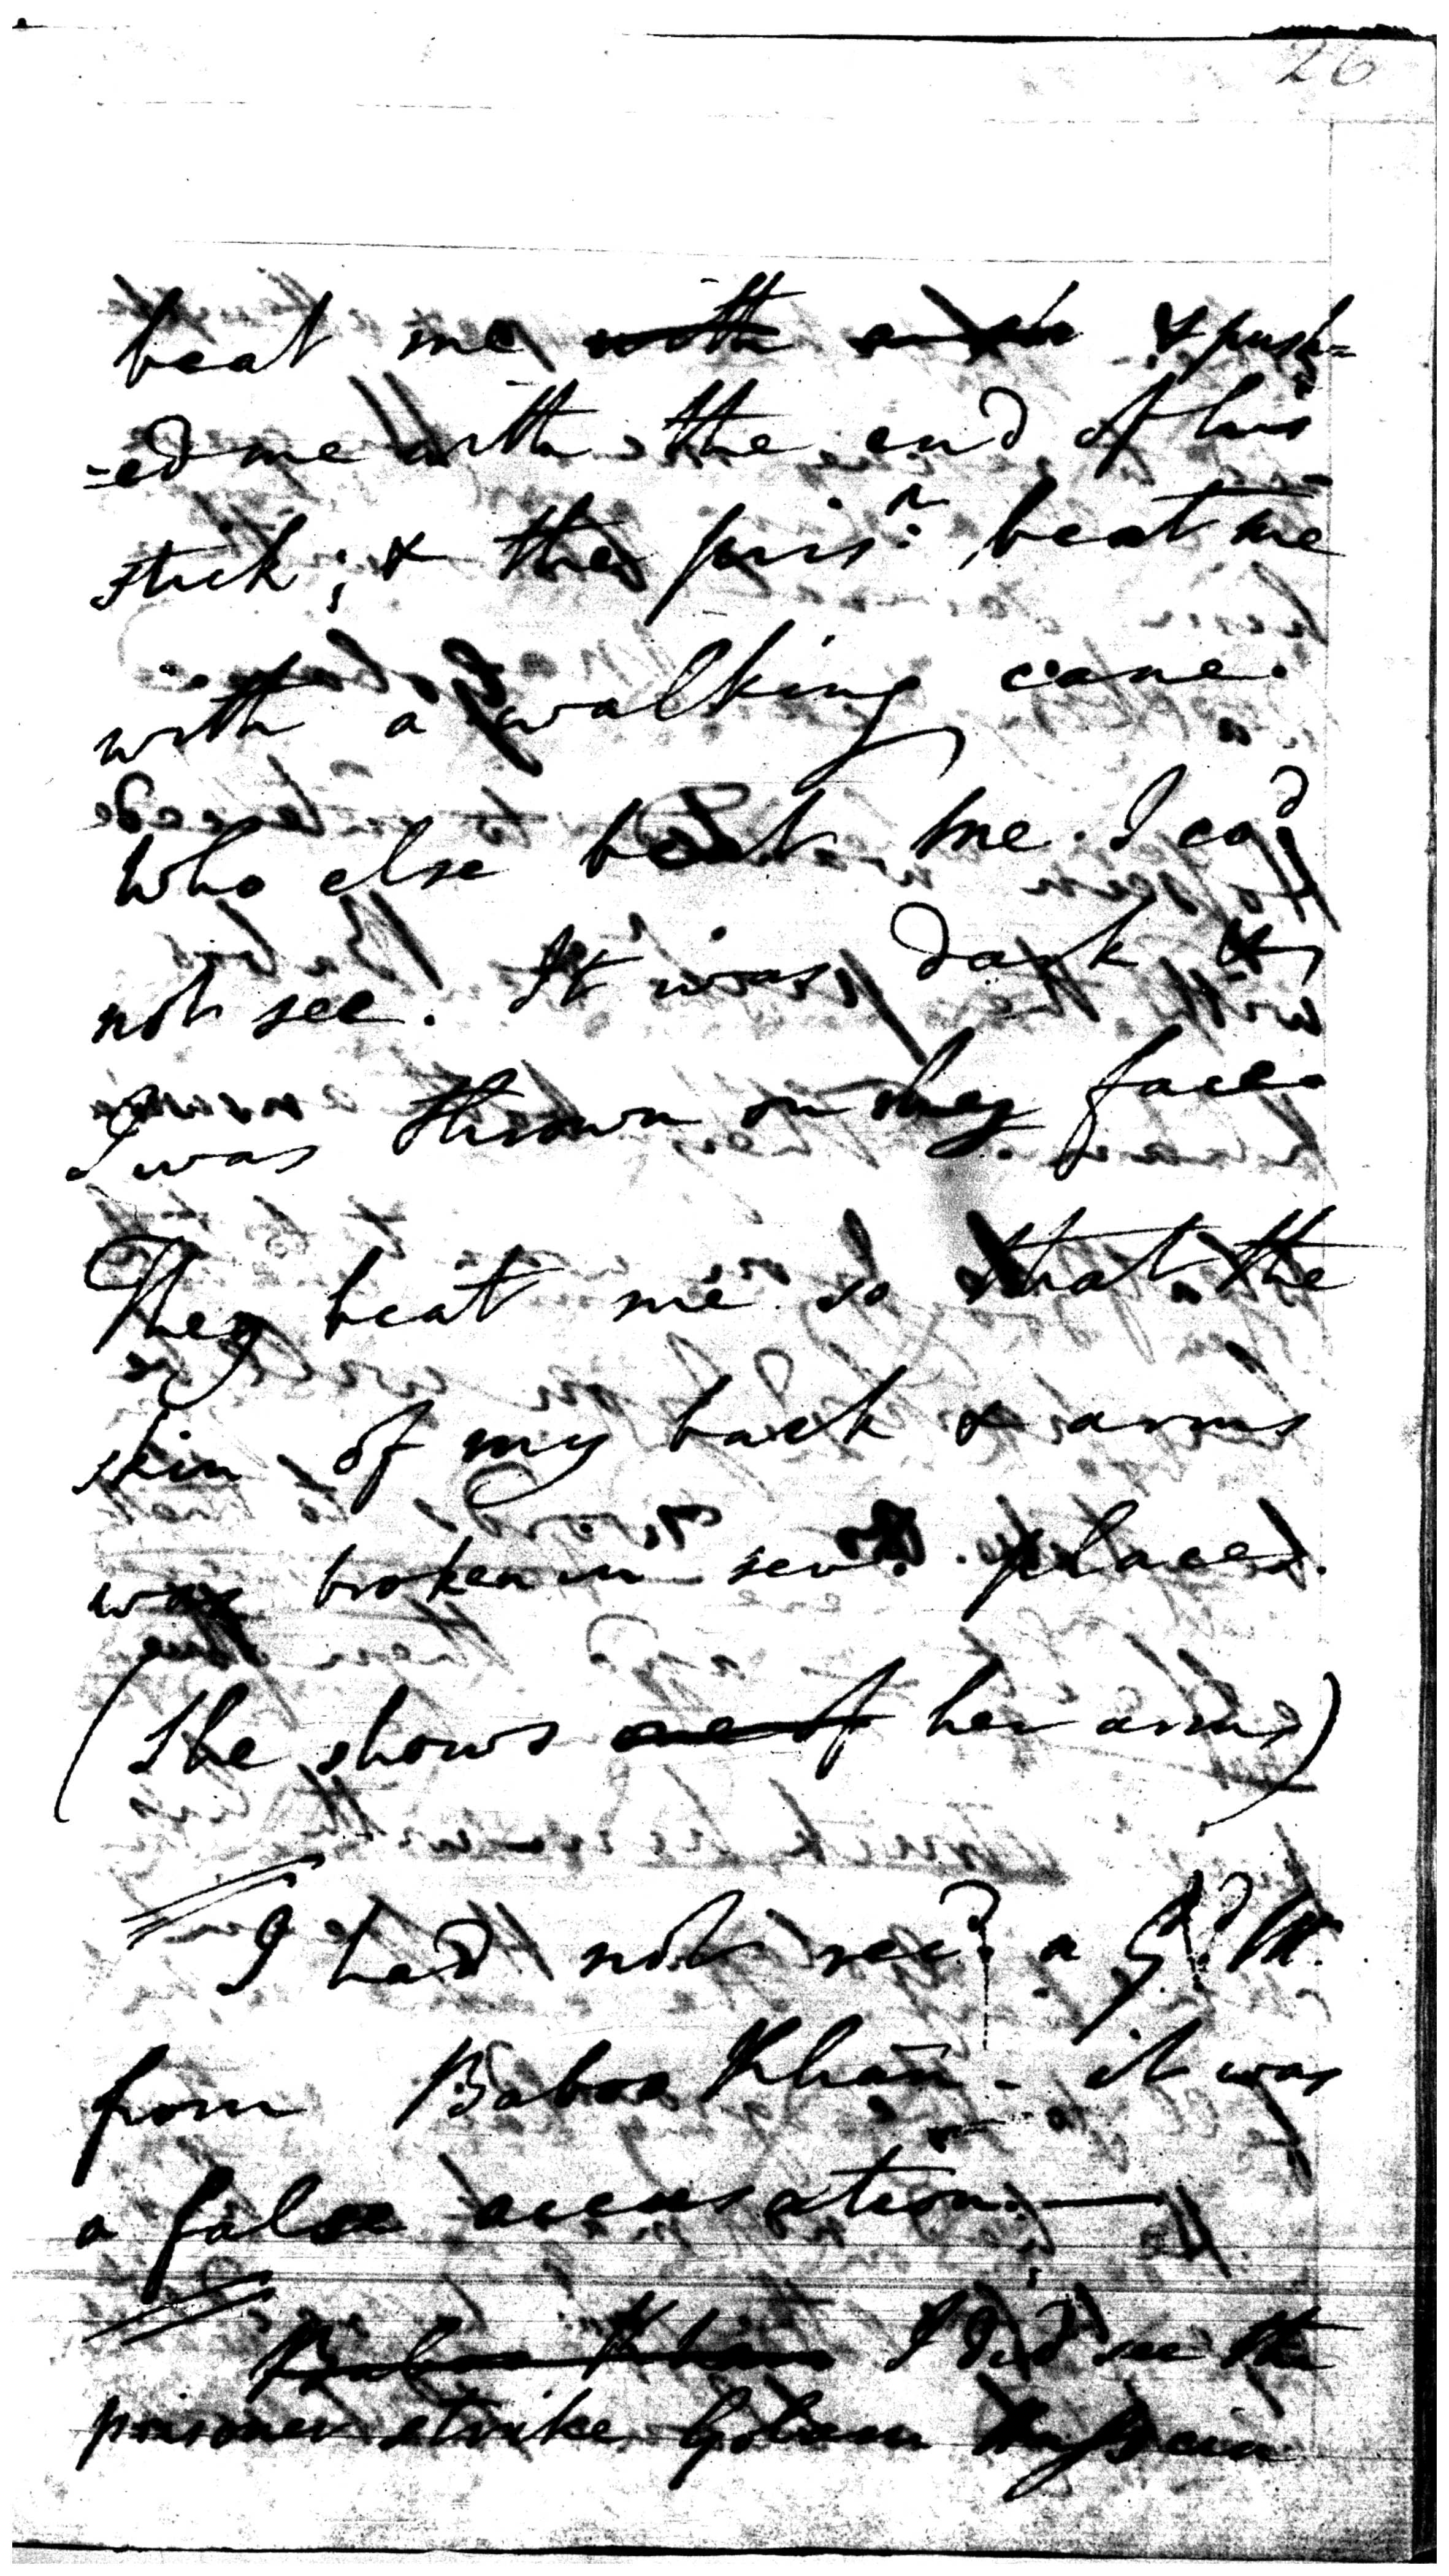 26
beat me with a stick & push=
=ed me with the end of his
stick; & the prisr beat me
with a walking cane.
Who else beat me I cod
not see. It was dark &
I was thrown on my face
They beat me so that the
skin of my back & arms
was broken in sevl places.
(She shows one of her arms)
I had not recd a Gd M.
from Baboo Khan - it was
a false accusation. —
Baboo Khan I did see the
prisoner strike Golam Hussein